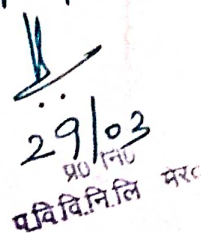 29/03
प्र० नि०
प.वि.वि.नि.लि मेर